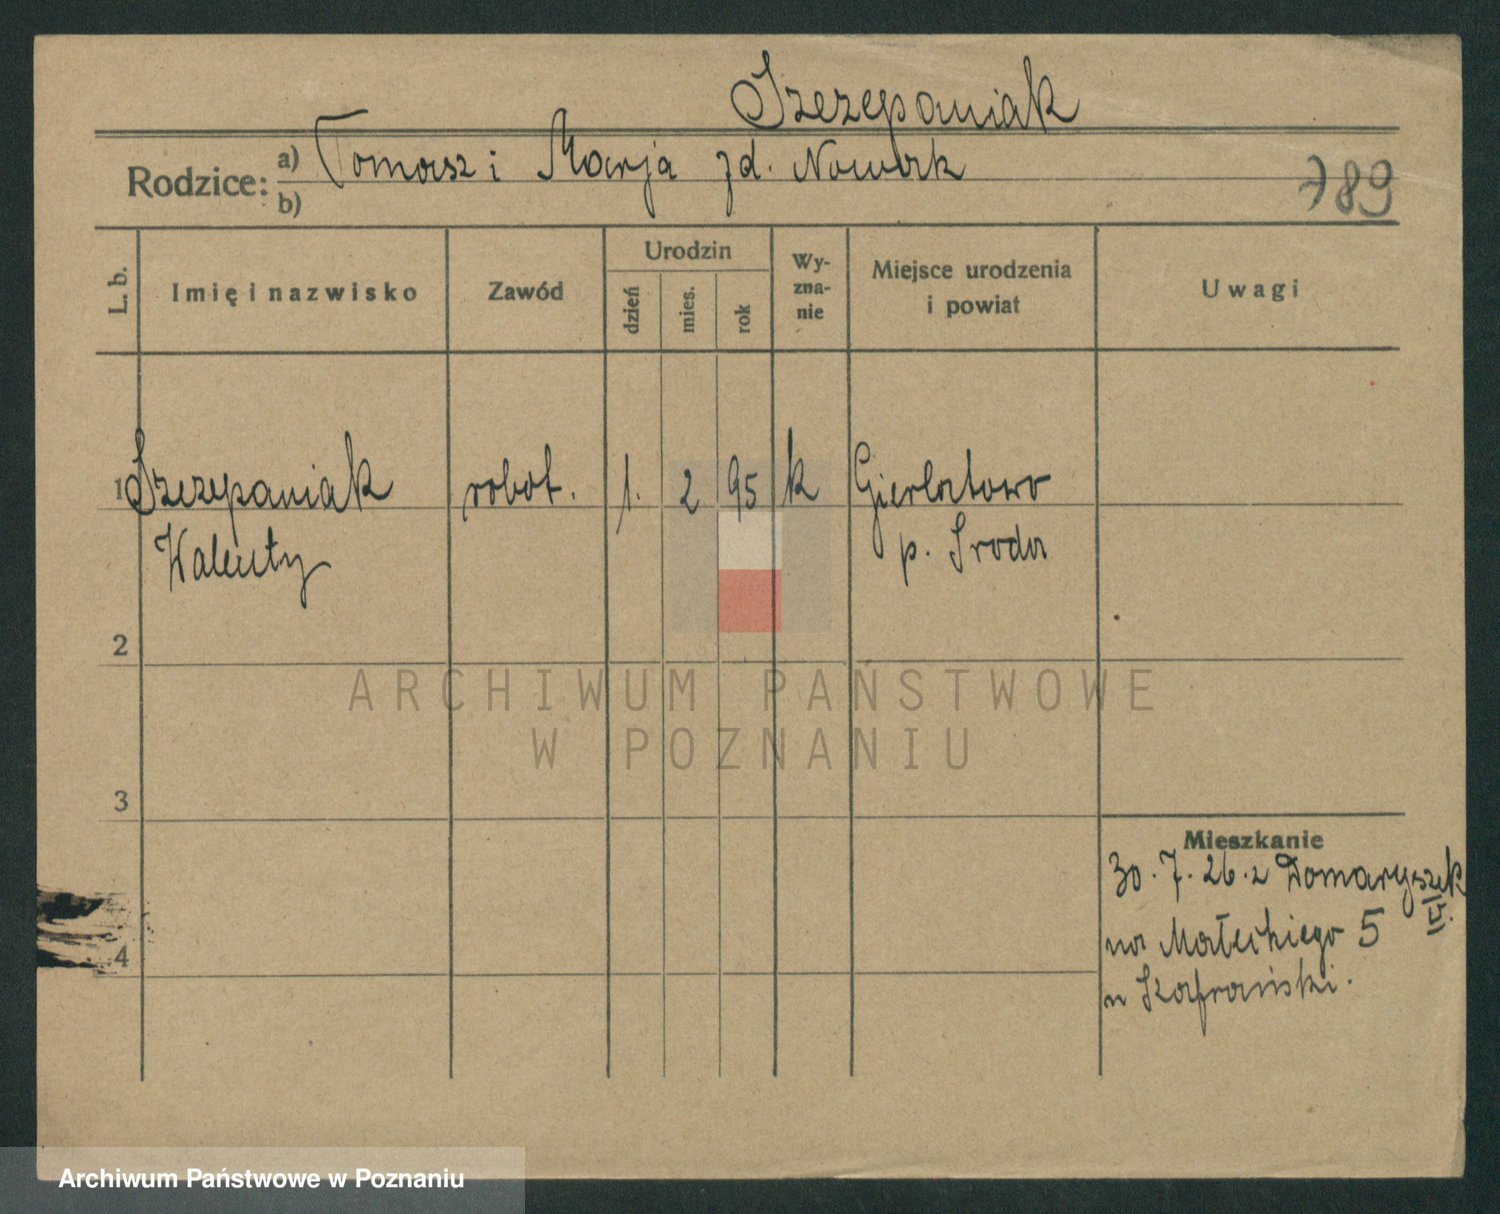 Szczepaniak
Rodzice: a) Tomasz i Marja zd. Nowak
b)
789
L. b.
Imię i nazwisko
Zawód
Urodzin
dzień
mies.
rok
Wy-
zna-
nie
Miejsce urodzenia
i powiat
Uwagi
1 Szczepaniak robot. 1. 2 95 k Gierłatowo
Walenty p. Środa
2
3
4
Mieszkanie
30. 7. 26. z Domaryszek
na Małeckiego 5
u Szafrański.
ARCHIWUM PAŃSTWOWE
W POZNANIU
Archiwum Państwowe w Poznaniu